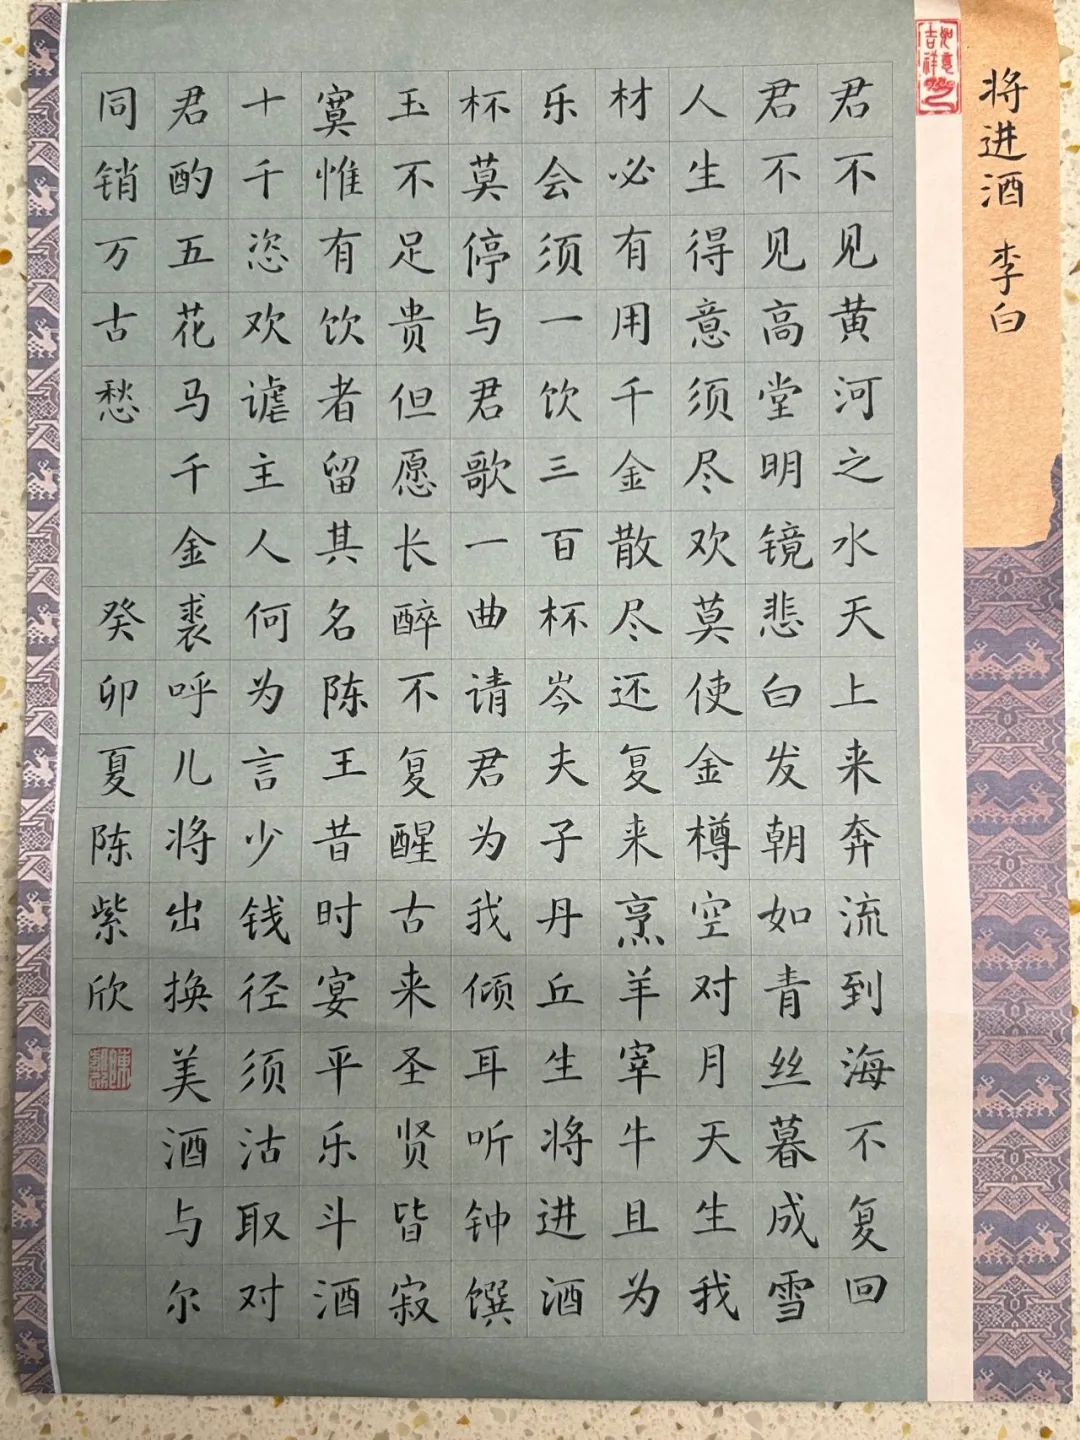 将进酒 李白
如意吉祥
君不见黄河之水天上来奔流到海不复回
君不见高堂明镜悲白发朝如青丝暮成雪
人生得意须尽欢莫使金樽空对月天生我
材必有用千金散尽还复来烹羊宰牛且为
乐会须一饮三百杯岑夫子丹丘生将进酒
杯莫停与君歌一曲请君为我倾耳听钟馔
玉不足贵但愿长醉不复醒古来圣贤皆寂
寞惟有饮者留其名陈王昔时宴平乐斗酒
十千恣欢谑主人何为言少钱径须沽取对
君酌五花马千金裘呼儿将出换美酒与尔
同销万古愁 癸卯夏陈紫欣